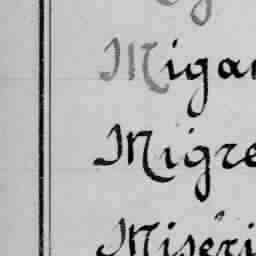 Migar
Migre
Miséri